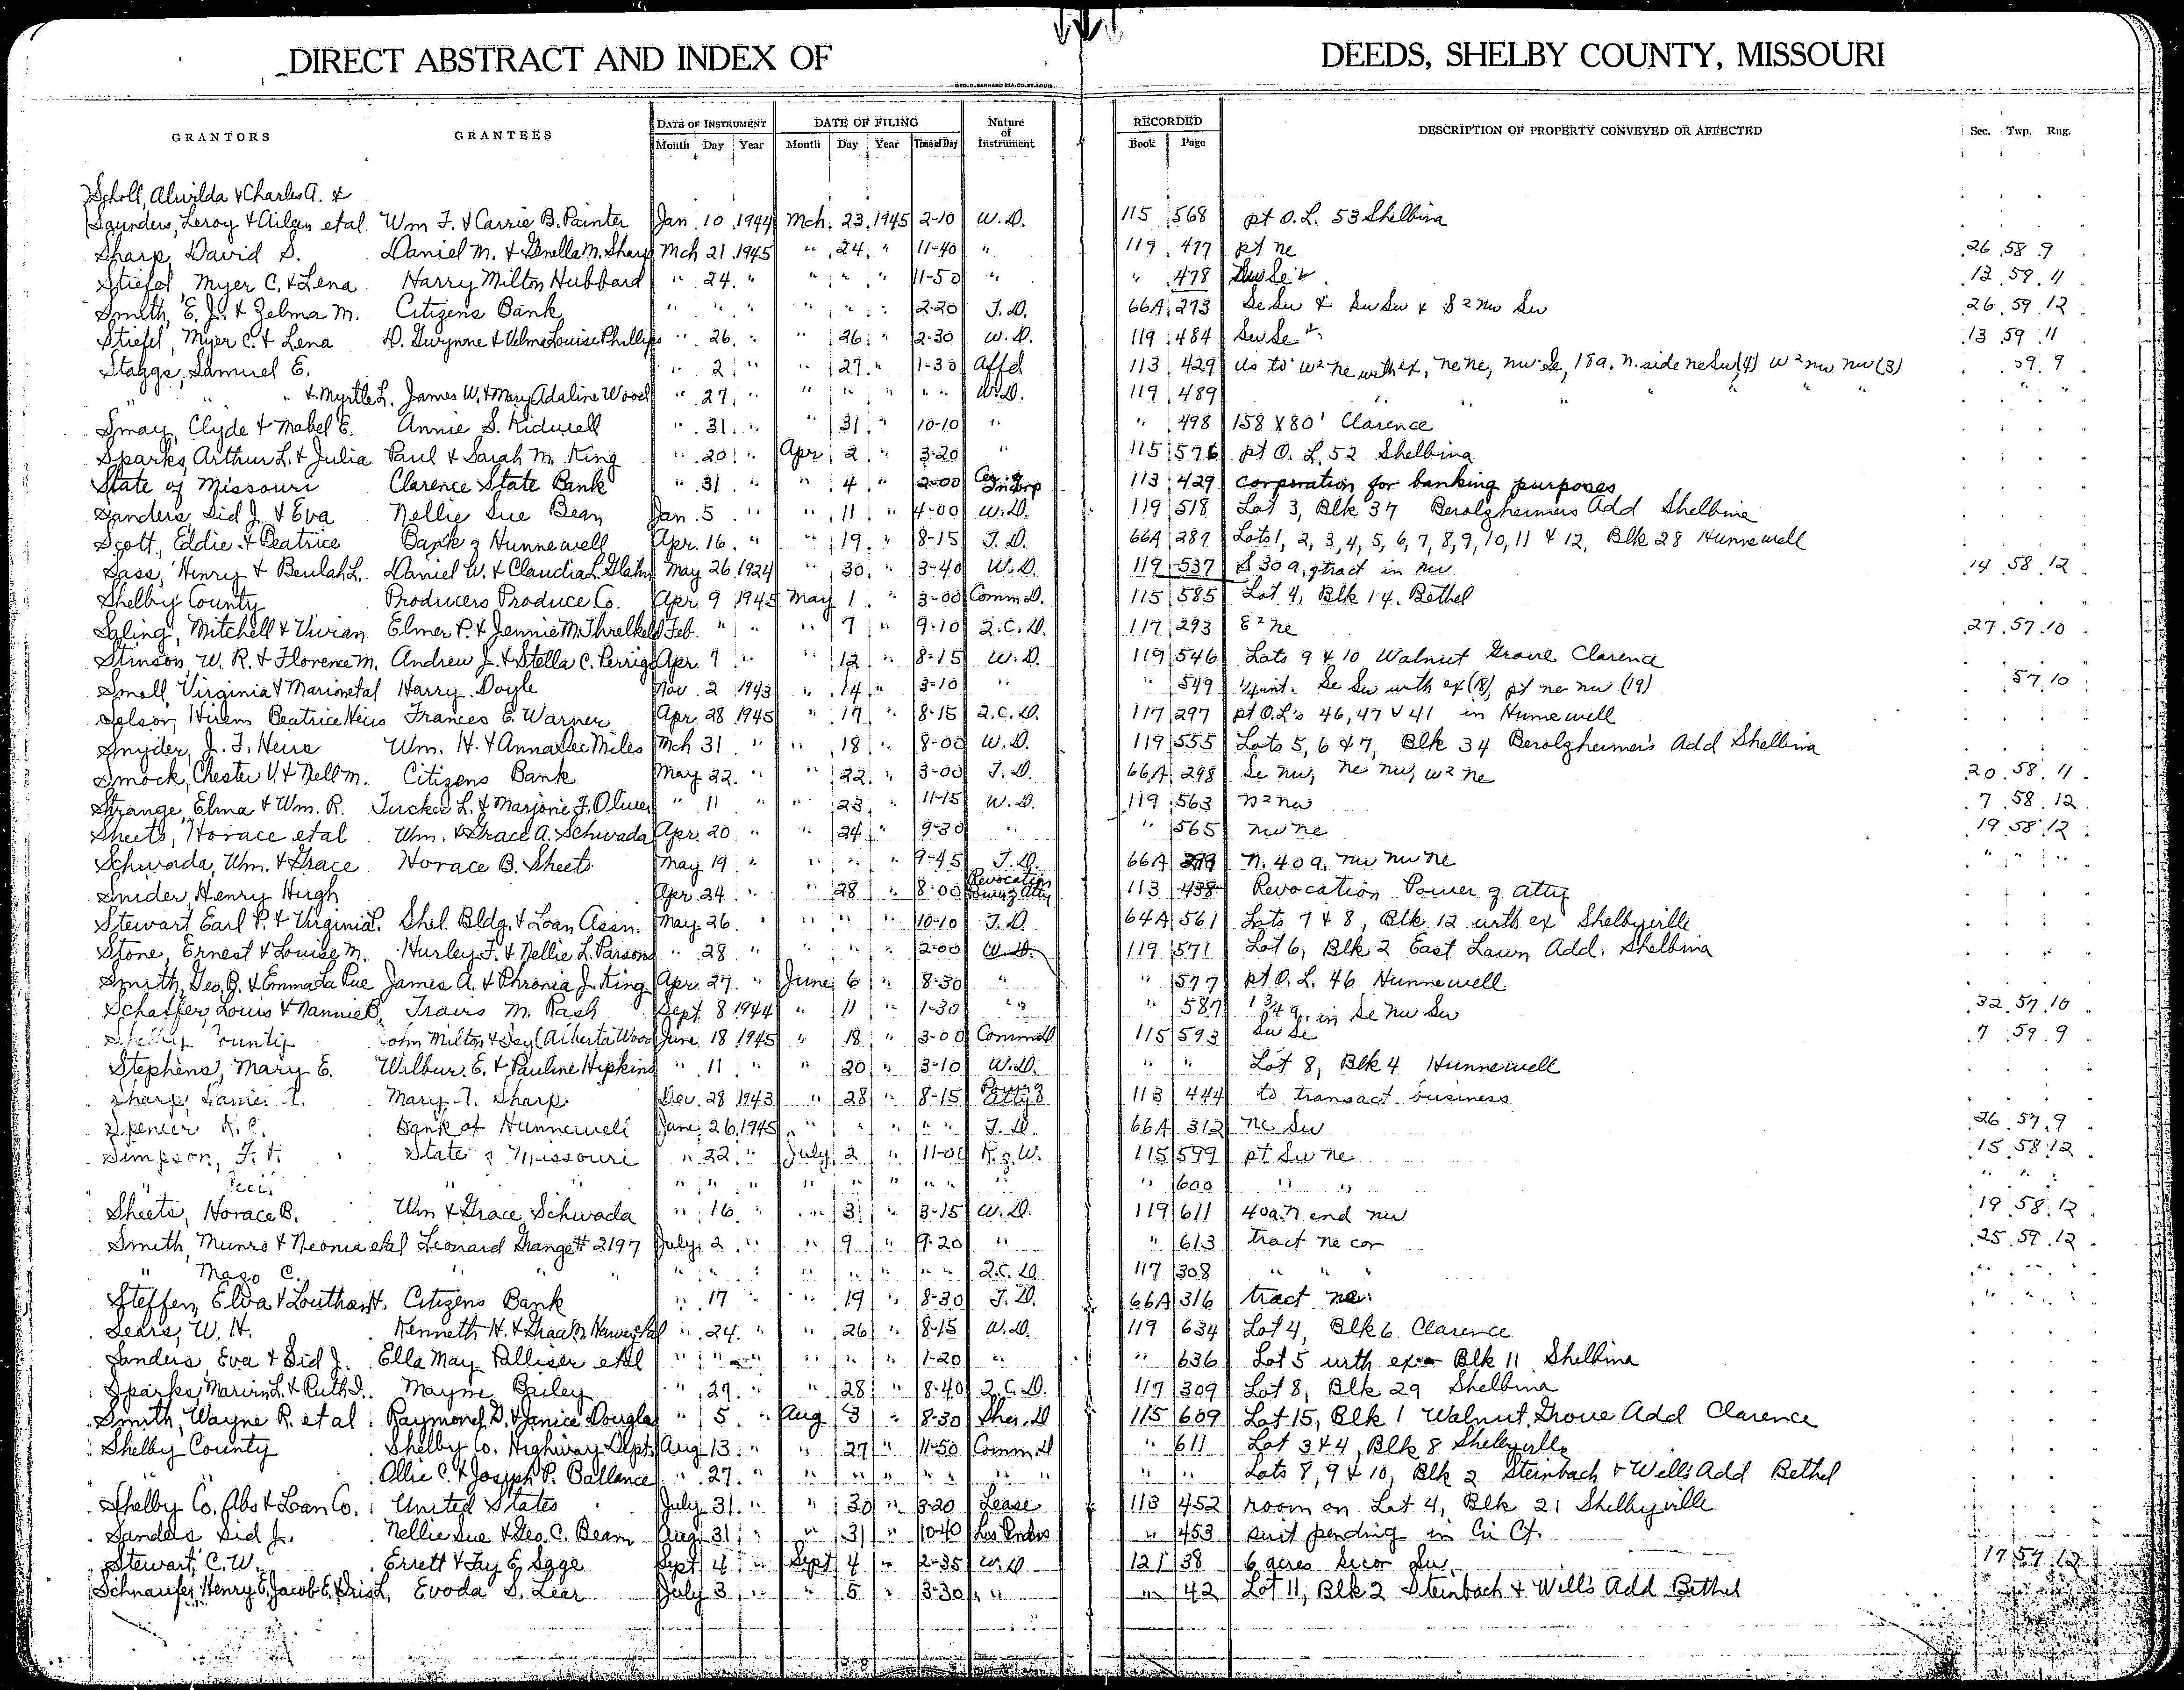 DIRECT ABSTRACT AND INDEX OF DEEDS, SHELBY COUNTY, MISSOURI
GEO. D. BARNARD STA. CO. ST. LOUIS
GRANTORS GRANTEES DATE OF INSTRUMENT DATE OF FILING Nature of Instrument RECORDED DESCRIPTION OF PROPERTY CONVEYED OR AFFECTED Sec. Twp. Rng.
Month Day Year Month Day Year Time of Day Book Page
Scholl, Alwilda & Charles A. &
Saunders, Leroy & Aileen etal Wm F. & Carrie B. Painter Jan. 10 1944 Mch. 23 1945 2-10 W.D. 115 568 pt O.L. 53 Shelbina
Sharp, David S. Daniel M. & Genella M. Sharp Mch 21 1945 " 24 " 11-40 " 119 477 pt ne 26 58 9
Stiefel, Myer C. & Lena Harry Milton Hubbard " 24 " " " " 11-50 " " 478 13 59 11
Smith, E. J. & Zelma M. Citizens Bank " " " " " " 2-20 T.D. 66A 273 Se Sw & Sw Sw & S2 nw Sw 26 59 12
Stiefel, Myer C. & Lena D. Gwynne & Velma Louise Phillips " 26 " " 26 " 2-30 W.D. 119 484 Sw Se 13 59 11
Staggs, Samuel E. " 2 " " 27 " 1-30 Affd 113 429 as to w2 ne with ex, ne ne, nw Se, 18a. n. side ne Sw (4) w2 nw nw (3) 59 9
" " " & Myrtle L. James W. & Mary Adaline Wood " 27 " " " " " " W.D. 119 489 " " " " " " "
Smay, Clyde & Mabel E. Annie S. Kidwell " 31 " " 31 " 10-10 " " 498 158 X 80' Clarence
Sparks, Arthur L. & Julia Paul & Sarah M. King " 20 " Apr 2 " 3-20 " 115 576 pt O. L. 52 Shelbina
State of Missouri Clarence State Bank " 31 " " 4 " 2-00 113 429 corporation for banking purposes
Sanders, Sid J. & Eva Nellie Sue Bean Jan. 5 " " 11 " 4-00 W.D. 119 518 Lot 3, Blk 37 Berolzheimers Add Shelbina
Scott, Eddie & Beatrice Bank of Hunnewell Apr. 16 " " 19 " 8-15 T.D. 66A 287 Lots 1, 2, 3, 4, 5, 6, 7, 8, 9, 10, 11 & 12, Blk 28 Hunnewell
Sass, Henry & Beulah L. Daniel W. & Claudia L. Glahn May 26 1924 " 30 " 3-40 W.D. 119 537 S 30 a. of tract in nw 14 58 12
Shelby County Producers Produce Co. Apr 9 1945 May 1 " 3-00 Comm D. 115 585 Lot 4, Blk 14. Bethel
Saling, Mitchell & Vivian Elmer P. & Jennie M. Threlkeld Feb. " " " 7 " 9-10 Q.C.D. 117 293 E2 ne 27 57 10
Stinson, W. R. & Florence M. Andrew J. & Stella C. Perrigo Apr. 7 " " 12 " 8-15 W.D. 119 546 Lots 9 & 10 Walnut Grove Clarence
Small, Virginia & Marion etal Harry Doyle Nov. 2 1943 " 14 " 3-10 " " 549 1/4 int. Se Sw with ex (18), pt ne nw (19) 57 10
Selsor, Hirem Beatrice Heirs Frances E. Warner Apr. 28 1945 " 17 " 8-15 Q.C.D. 117 297 pt O.L's 46, 47 & 41 in Hunnewell
Snyder, J. F. Heirs Wm. H. & Anna Lee Miles Mch 31 " " 18 " 8-00 W.D. 119 555 Lots 5, 6 & 7, Blk 34 Berolzheimer's Add Shelbina
Smock, Chester V. & Nell M. Citizens Bank May 22 " " 22 " 3-00 T.D. 66A 298 Se nw, ne nw, w2 ne 20 58 11
Strange, Elma & Wm. R. Tucker L. & Marjorie J. Oliver " 11 " " 23 " 11-15 W.D. 119 563 n2 nw 7 58 12
Sheets, Horace etal Wm. & Grace A. Schwada Apr. 20 " " 24 " 9-30 " " 565 nw ne 19 58 12
Schwada, Wm. & Grace Horace B. Sheets May 19 " " " " 9-45 T.D. 66A n. 40 a. nw nw ne " " "
Snider, Henry Hugh Apr. 24 " " 28 " 8-00 Revocation Power of Atty 113 438 Revocation Power of Atty
Stewart Earl P. & Virginia L. Shel. Bldg. & Loan Assn. May 26 " " " " 10-10 T.D. 64A 561 Lots 7 & 8, Blk 12 with ex Shelbyville
Stone, Ernest & Louise M. Hurley F. & Nellie L. Parsons " 28 " " " " 2-00 W.D. 119 571 Lot 6, Blk 2 East Lawn Add. Shelbina
Smith, Geo. B. & Emma La Rue James A. & Phronia J. King Apr. 27 " June 6 " 8-30 " " 577 pt O. L. 46 Hunnewell
Schaffer, Louis & Nannie B. Travis M. Rash Sept. 8 1944 " 11 " 1-30 " " 587 1 3/4 a. in Se nw Sw 32 57 10
Shelby County John Milton & Alberta Wood June 18 1945 " 18 " 3-00 Comm D 115 593 Sw Se 7 59 9
Stephens, Mary E. Wilbur E. & Pauline Hipkins " 11 " " 20 " 3-10 W.D. " " Lot 8, Blk 4 Hunnewell
Sharp, Daniel T. Mary T. Sharp Dec. 28 1943 " 28 " 8-15 Power of Atty 113 444 to transact business
Spencer R. C. Bank of Hunnewell June 26 1945 " " " " " T.D. 66A 312 ne Sw 26 57 9
Simpson, F. State of Missouri " 22 " July 2 " 11-00 R. of W. 115 599 pt Sw ne 15 58 12
" " " " " " " " " " " " " 600 " " " " "
Sheets, Horace B. Wm & Grace Schwada " 16 " " 3 " 3-15 W.D. 119 611 40a. n end nw 19 58 12
Smith, Munro & Neoma etal Leonard Grange # 2197 July 2 " " 9 " 9-20 " " 613 tract ne cor 25 59 12
" Mago C. " " " " " " " " " " " Q.C.D. 117 308 " " " " " "
Steffen, Elva & Louthan H. Citizens Bank " 17 " " 19 " 8-30 T.D. 66A 316 tract ne " " "
Sears, W. H. Kenneth H. & " 24 " " 26 " 8-15 W.D. 119 634 Lot 4, Blk 6 Clarence
Sanders, Eva & Sid J. Ella May Palliser etal " " " " " " 1-20 " " 636 Lot 5 with ex Blk 11 Shelbina
Sparks, Marvin L. & Ruth I. Mayme Bailey " 27 " " 28 " 8-40 Q.C.D. 117 309 Lot 8, Blk 29 Shelbina
Smith, Wayne R. et al Raymond D. & Janice Douglas " 5 " Aug 3 " 8-30 Sher. D 115 609 Lot 15, Blk 1 Walnut Grove Add Clarence
Shelby County Shelby Co. Highway Dept. Aug 13 " " 27 " 11-50 Comm. D " 611 Lot 3 & 4, Blk 8 Shelbyville
" " Ollie C. & Joseph P. Ballance " 27 " " " " " " " " " " Lots 8, 9 & 10, Blk 2 Steinbach & Will's Add Bethel
Shelby Co. Abs & Loan Co. United States July 31 " " 30 " 3-20 Lease 113 452 room on Lot 4, Blk 21 Shelbyville
Sanders Sid J. Nellie Sue & Geo. C. Bean Aug 31 " " 31 " 10-40 Lis Pendens " 453 suit pending in Cir Ct.
Stewart, C. W. Errett & Fay E. Sage Sept 4 " Sept 4 " 2-35 W.D 121 38 6 acres Se cor Sw 17 57 12
Schnaufer, Henry C, Jacob E, & Kris L, Evoda S. Lear July 3 " " 5 " 3-30 " " " 42 Lot 11, Blk 2 Steinbach & Will's Add Bethel